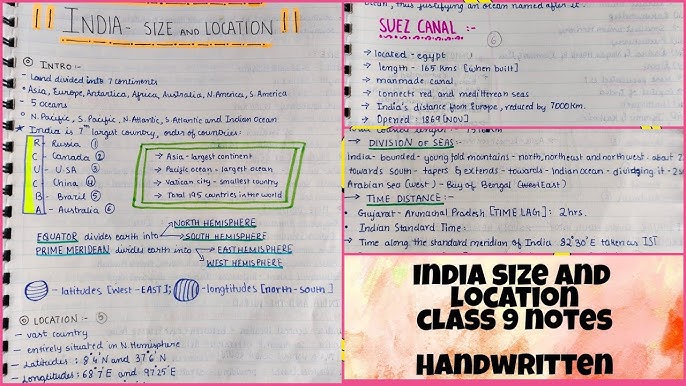 " INDIA - SIZE AND LOCATION "
INTRO:-
- Land divided into 7 continents
• Asia, Europe, Antartica, Africa, Australia, N.America, S.America
- 5 oceans
• N.Pacific, S.Pacific, N.Atlantic, S.Atlantic and Indian Ocean
★ India is 7th largest country, order of countries:
R - Russia (1)
C - Canada (2)
U - U.S.A (3)
C - China (4)
B - Brazil (5)
A - Australia (6)
→ Asia - largest continent
→ Pacific ocean - largest ocean
→ Vatican city - smallest country
→ Total 195 countries in the world
EQUATOR divides earth into → NORTH HEMISPHERE
→ SOUTH HEMISPHERE
PRIME MERIDEAN divides earth into → EAST HEMISPHERE
→ WEST HEMISPHERE
- latitudes [West - EAST]; - longtitudes [north - south]
LOCATION :- (5)
- vast country
- entirely situated in N.Hemisphere
- Latitudes : 8°4'N and 37°6'N
- Longitudes: 68°7'E and 97°25'E
ocean, thus justifying an ocean named after it.
SUEZ CANAL :-
(6)
→ located - egypt
→ length - 165 Kms [when built]
→ manmade canal
→ connects red and mediterean seas
→ India's distance from Europe, reduced by 7000Km.
→ Opened : 1869 [NOV]
→ DIVISION OF SEAS:-
India - bounded - young fold mountains - north, northeast and northwest - about 2
towards south - tapers & extends - towards - Indian ocean - dividing it - 2
Arabian sea (west) - Bay of Bengal (West East)
→ TIME DISTANCE:-
• Gujarat - Arunachal Pradesh [TIME LAG] : 2hrs.
• Indian Standard Time:
✓ Time along the standard meridian of India 82°30'E taken as IST
INDIA SIZE AND
LOCATION
CLASS 9 NOTES
HANDWRITTEN